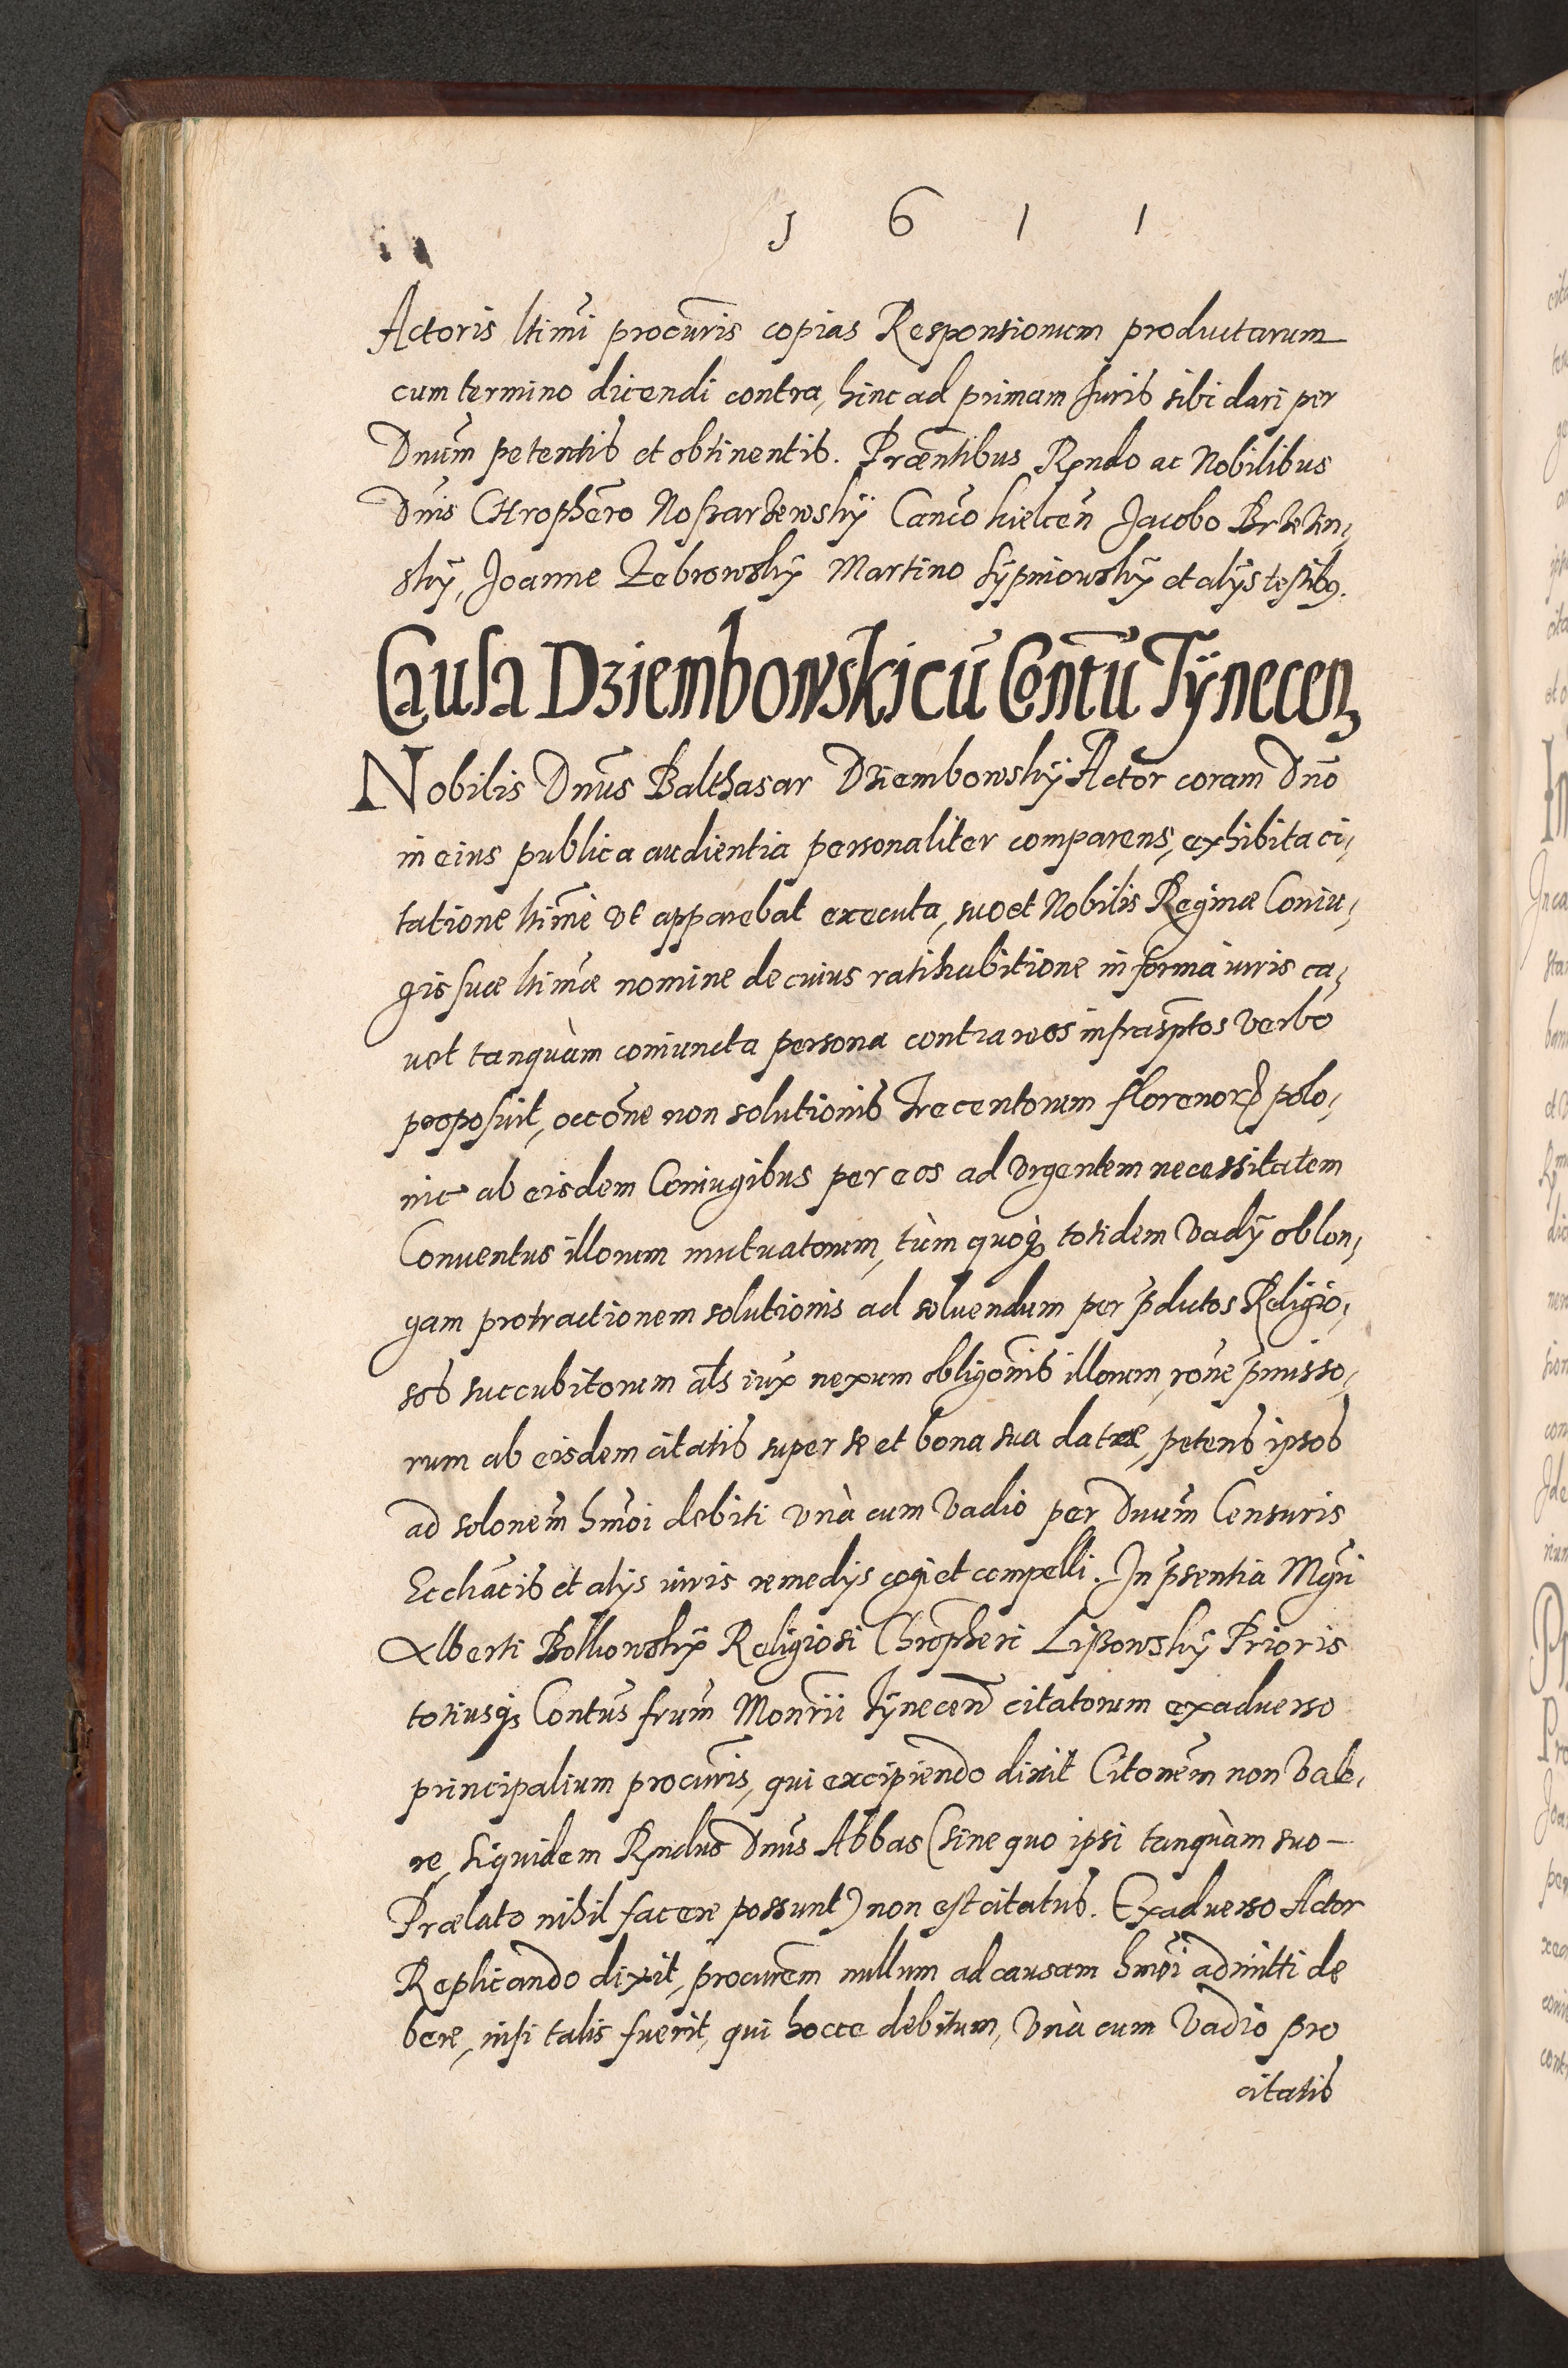 1 6 1 1
Actoris ltimi procuris copias Responsionum productarum
cum termino dicendi contra, hinc ad primam Iuris sibi dari per
Dnum petentis et obtinentis. Præntibus Rndo ac Nobilibus
Dnis Chrophero Noskarzewskÿ Canco kielcen Jacobo Brzezin,
skÿ, Joanne Zebrowskÿ Martino Sÿpniowskÿ et alÿs testibus.
Causa Dziembowski cũ Contũ Tÿnecen
Nobilis Dnus Balthasar Dziembowskÿ Actor coram Dno
in eius publica audientia personaliter comparens, exhibita ci,
tatione ltimè vt apparebat executa, suo et Nobilis Reginæ Coniu,
gis suæ ltimæ nomine de cuius ratihabitione in forma iuris ca,
uet tanquàm coniuncta persona contra reos infrasptos verbo
proposuit, occone non solutionis trecentorum florenor polo,
nic ab eisdem Coniugibus per eos ad vrgentem necessitatem
Conuentus illorum mutuatorum, tùm quoq totidem vadÿ ob lon,
gam protractionem solutionis ad soluendum per pdictos Religio,
sos succubitorum als iux nexum obligonis illorum, rone pmisso,
rum ab eisdem citatis super se et bona sua datæ, petens ipsos
ad solonem hmoi debiti vnà cum vadio per Dnum Censuris
Eccliacis et alÿs iuris remedÿs cogi et compelli. In psentia Mgri
Alberti Borkowskÿ Religiosi Chropheri Lißowskÿ Prioris
totiusq Contus frum Monrii Tÿnecen citatorum ex aduerso
principalium procuris, qui excipiendo dixit Citonem non vale,
re, siquidem Rndus Dnus Abbas (sine quo ipsi tanquàm suo -
Prælato nihil facere possunt) non est citatus. Ex aduerso Actor
Replicando dixit, procurem nullum ad causam hmoi admitti de
bere, nisi talis fuerit, qui hocce debitum, vnà cum vadio pro
citatis